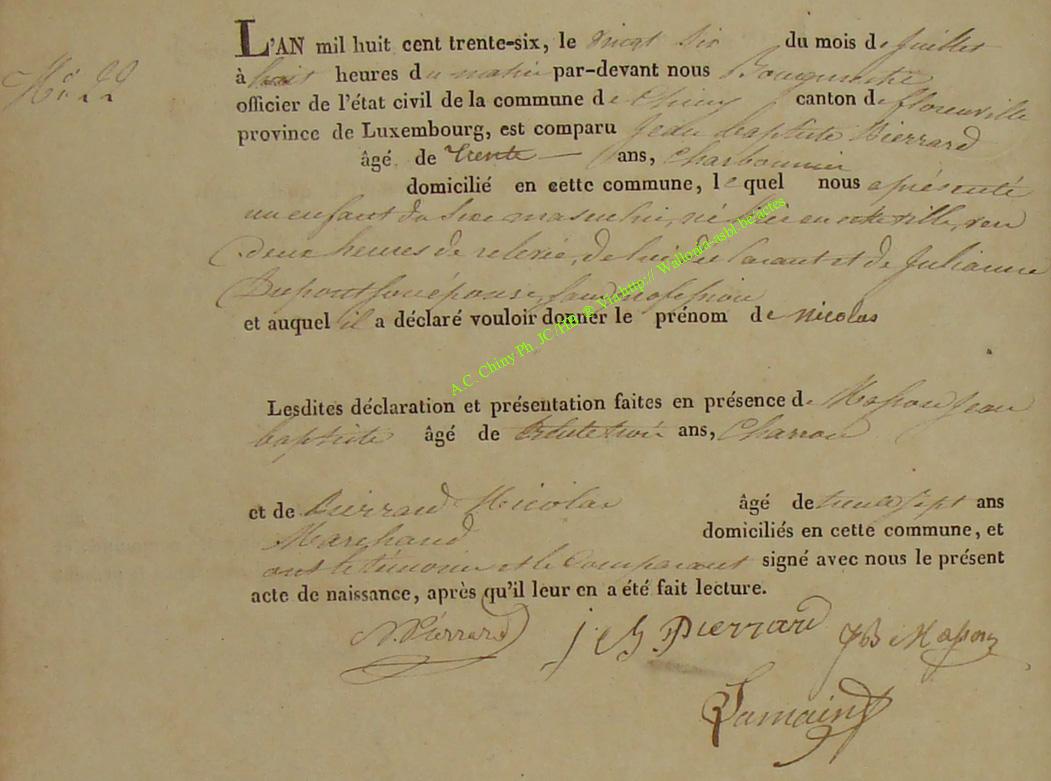 L'AN mil huit cent trente-six, le vingt six du mois de juillet
No. 22
à huit heures du matin par-devant nous
officier de l'état civil de la commune de Chiny canton de florenville
province de Luxembourg, est comparu Jean baptiste Pierrard
âgé de trente ans, charbonnier
domicilié en cette commune, lequel nous a présenté
un enfant du sexe masculin, né hier en cette ville, vers
deux heures de relevée, de lui déclarant et de Julianne
Dupont son épouse, sans profession
et auquel il a déclaré vouloir donner le prénom de nicolas
A.C. Chiny Ph JC /HB ® Via http:// Wallonia-asbl.be/actes
Lesdites déclaration et présentation faites en présence de Masson Jean
baptiste âgé de trente trois ans, Charron
et de Pierrard Nicolas âgé de trente sept ans
Marchand domiciliés en cette commune, et
ont le témoins et le Comparant signé avec nous le présent
acte de naissance, après qu'il leur en a été fait lecture.
N. Pierrard J B Pierrard JB Masson